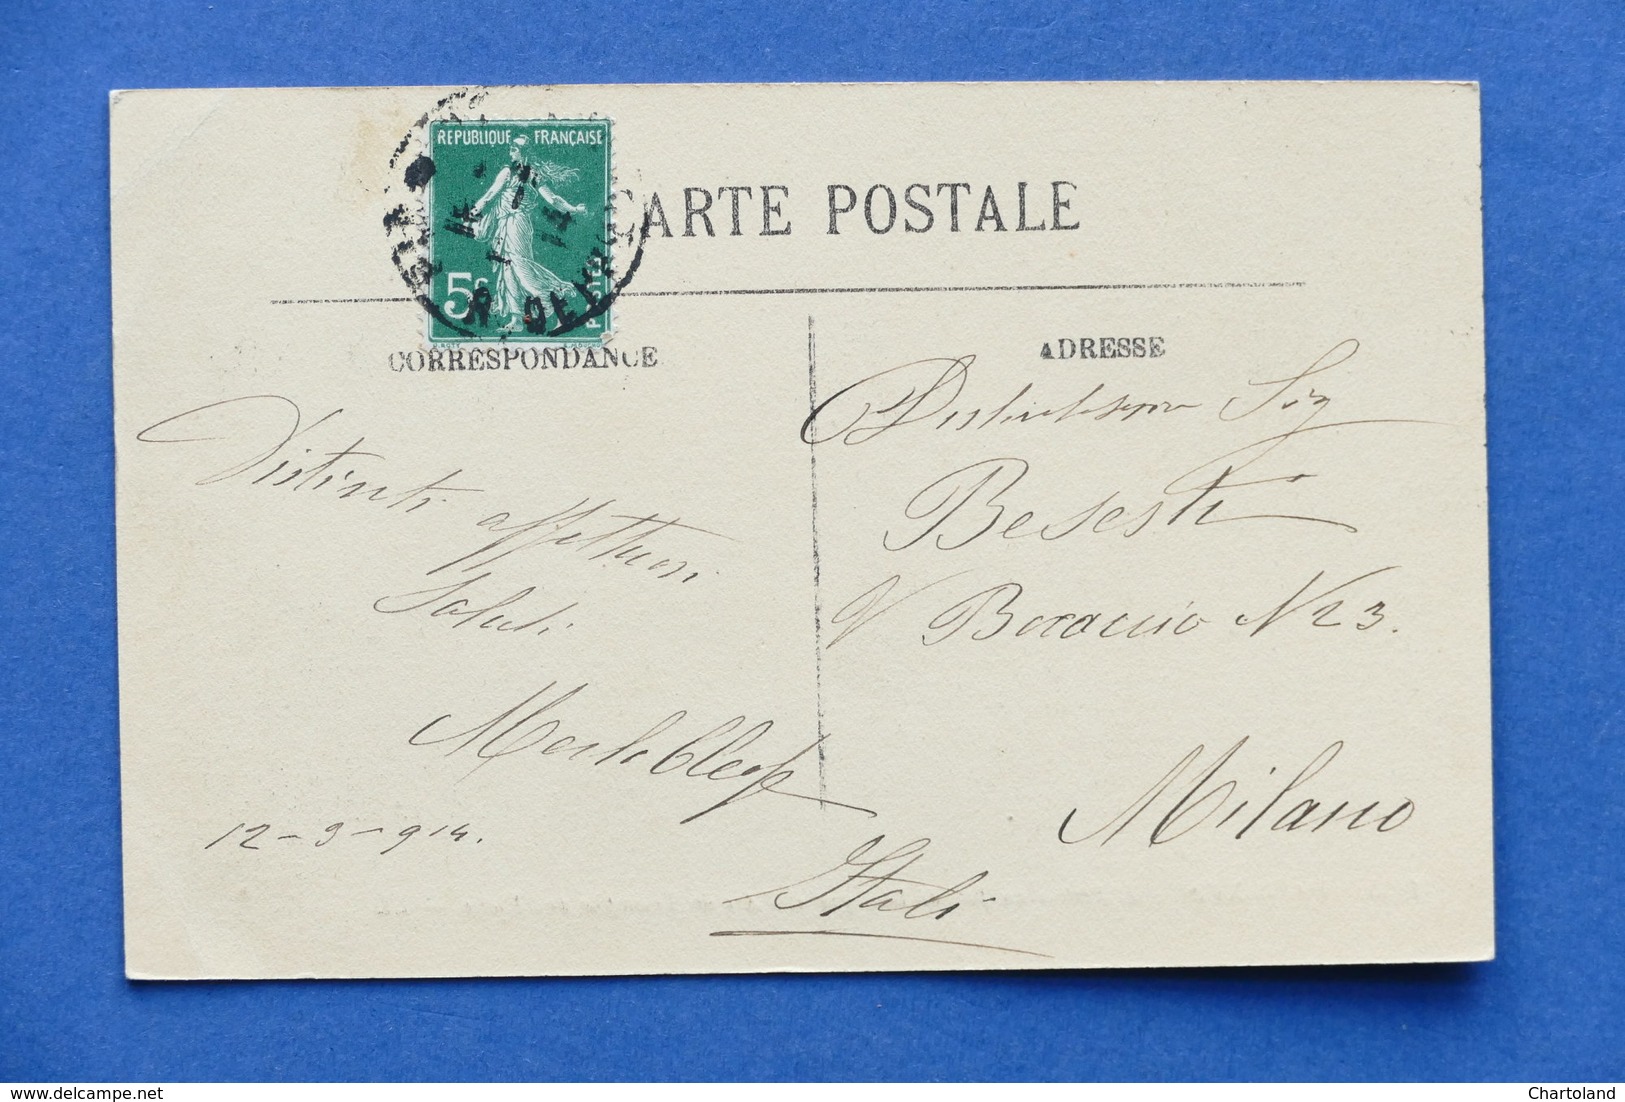 RÉPUBLIQUE FRANÇAISE
5c
POSTES
CARTE POSTALE
CORRESPONDANCE
ADRESSE
Distinti affettuosi
Saluti
12-3-914.
Sig
Besesti
V Bocaccio N 23.
Milano
Itali
© Chartoland